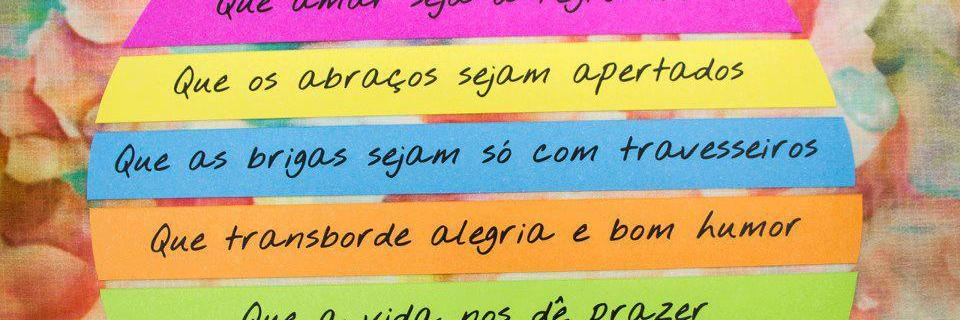 Que amar seja a regra
Que os abraços sejam apertados
Que as brigas sejam só com travesseiros
Que transborde alegria e bom humor
Que a vida nos dê prazer